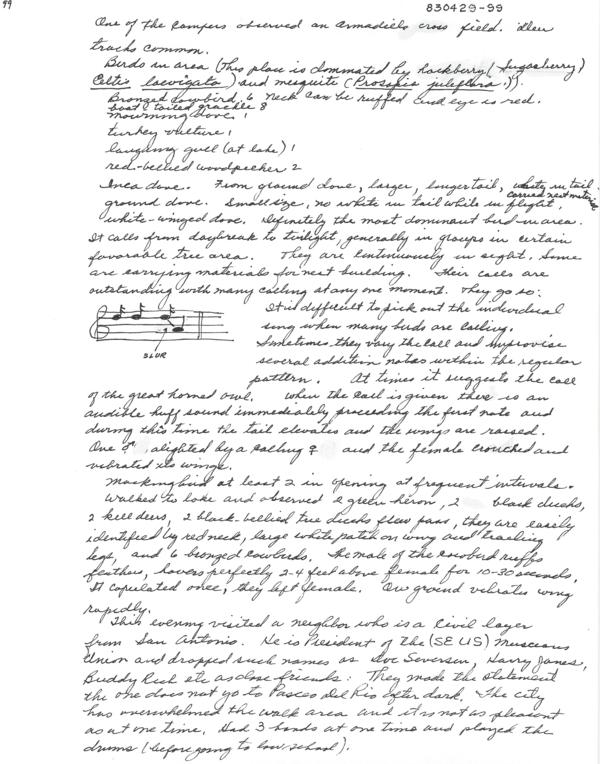 99
830429-99
One of the campers observed an armadiello cross field. deer
tracks common.
Birds in area (This place is dommated by hackberry (Sugarberry)
Celtis laevigata) and mesquite (Prosopis juleflora.)).
Bronzed cowbird. 6 Neck can be ruffed and eye is red.
boat tailed grackle 8
mourning dove 1
turkey vulture 1
laughing gull (at lake) 1
red-bellied woodpecker 2
Inca dove. From ground dove, larger, longer tail, white in tail.
carried nest material
ground dove. Small size, no white in tail while in flight.
white-winged dove. Definitely the most dominant bird in area.
It calls from daybreak to twilight, generally in groups in certain
favorable tree area. They are continuously in sight. Some
are carrying materials for nest building. Their calls are
outstanding with many calling at any one moment. They go so:
SLUR
It is difficult to pick out the individual
song when many birds are calling.
Sometimes they vary the call and improvise
several addition notes within the regular
pattern. At times it suggests the call
of the great horned owl. When the call is given there is an
audible huff sound immediately preceeding the first note and
during this time the tail elevates and the wings are raised.
One ♂, alighted by a calling ♀ and the female crouched and
vibrated its wings.
Mockingbird at least 2 in opening at frequent intervals.
Walked to lake and observed 2 green heron, 2 black ducks,
2 killdeers, 2 black-bellied tree ducks flew pass, they are easily
identified by red neck, large white patch on wing and trailing
legs, and 6 bronzed cowbirds. The male of the cowbird ruffs
feathers, hovers perfectly 2-4 feet above female for 10-30 seconds,
It copulated once, they left female. On ground vibrates wing
rapidly.
This evening visited a neighbor who is a Civil layer
from San Antonio. He is President of the (SE US) Musicians
Union and dropped such names as Doc Severson, Harry James,
Buddy Rich etc as close friends. They made the statement
the one does not go to Paseo Del Rio after dark. The city
has overwhelmed the walk area and it is not as pleasant
as at one time. Had 3 bands at one time and played the
drums (before going to law school).